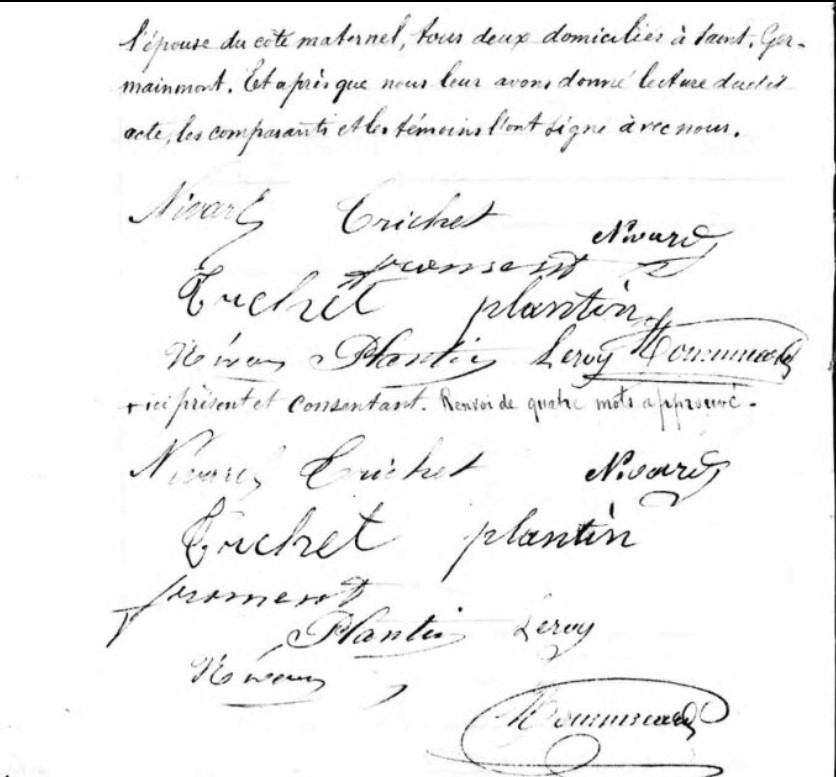 l'épouse du côté maternel, tous deux domiciliés à Saint. Ger-
mainmont. Et après que nous leur avons donné lecture dudit
acte, les comparants et les témoins l'ont signé avec nous.
Nivard Trichet Nivard
froment
Trichet plantin
Plantin Leroy
+ ici présent et consentant. Renvoi de quatre mots approuvé.
Nivard Trichet Nivard
Trichet plantin
froment
Plantin Leroy